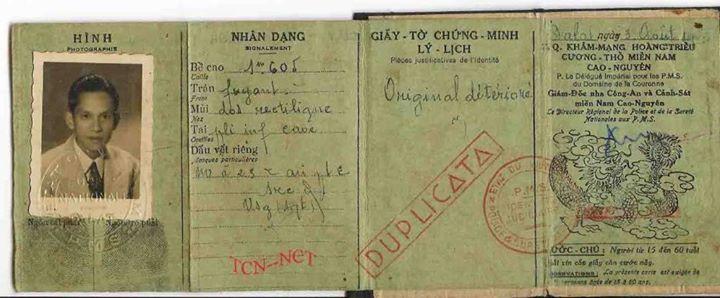 HÌNH
PHOTOGRAPHIE
Ngón cái phải
Ngón trỏ phải
NHÂN DẠNG
SIGNALEMENT
Bề cao 1m605
Taille
Trán fuyant
Front
Mũi dos rectiligne
Nez
Tai pli inf cave
Oreilles
Dấu vết riêng
Marques particulières
TCN-NCT
GIẤY-TỜ CHỨNG-MINH
LÝ-LỊCH
Pièces justificatives de l'identité
Original détérioré
DUPLICATA
P.M.S.
Dalat ngày 3 Août
Q. KHÂM-MẠNG HOÀNG TRIỀU
CƯƠNG-THỔ MIỀN NAM
CAO-NGUYÊN
P. Le Délégué Impérial pour les P.M.S.
du Domaine de la Couronne
Giám-Đốc nha Công-An và Cảnh-Sát
miền Nam Cao-Nguyên
Le Directeur Régional de la Police et de la Sureté
Nationales aux P.M.S.
ƯỚC-CHÚ : Người từ 15 đến 60 tuổi
xin căn giấy căn cước này.
OBSERVATIONS : La présente carte est exigée de
personnes âgée de 15 à 60 ans.